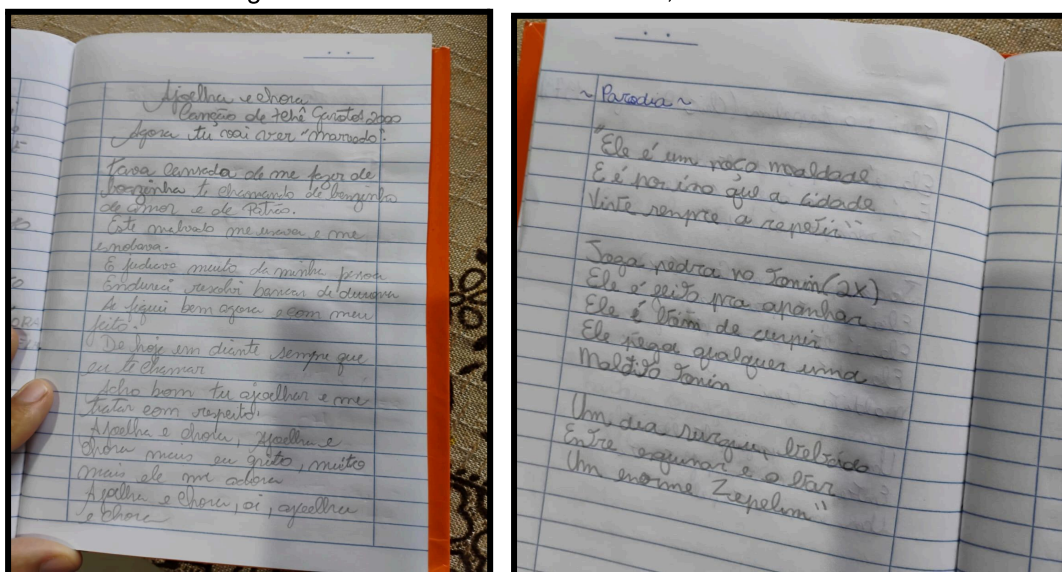 Ajoelha e chora
Canção de tchê Garotos 2000
Agora tu vai ver "marvado".
Tava cansada de me fazer de
boazinha te chamando de benzinho
de amor e de Patrão.
Este malvado me usava e me
E judiava muito da minha pessoa
Endureci resolvi bancar di durona
Ai fiquei bem agora e com meu
jeito.
De hoje em diante sempre que
eu te chamar
Acho bom tu ajoelhar e me
tratar com respeito.
Ajoelha e chora, ajoelha e
chora mais eu grito, muito
mais ele me adora
Ajoelha e chora, oi, ajoelha
e chora
~ Parodia ~
"Ele é um poço maldade
E é por isso que a cidade
Vive sempre a repetir"
Joga pedra no Tonin (2X)
Ele é feito pra apanhar
Ele é bom de cuspir
Ele pega qualquer uma
Maldito Tonin
Um dia surgiu, brilhando
Entre e o bar
Um enorme Zepelim"